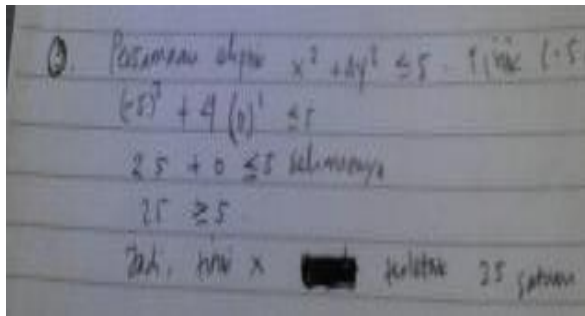 2. Persamaan elips x² + 4y² ≤ 5. Titik (-5
(-5)² + 4(0)² ≤ 5
25 + 0 ≤ 5 seharusnya
25 ≥ 5
Jadi, titik x terletak 25 satuan